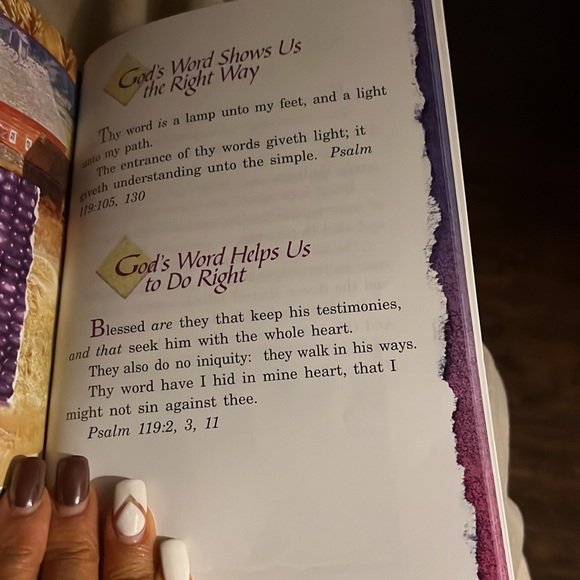 God's Word Shows Us
the Right Way
Thy word is a lamp unto my feet, and a light
unto my path.
The entrance of thy words giveth light; it
giveth understanding unto the simple. Psalm
119:105, 130
God's Word Helps Us
to Do Right
Blessed are they that keep his testimonies,
and that seek him with the whole heart.
They also do no iniquity: they walk in his ways.
Thy word have I hid in mine heart, that I
might not sin against thee.
Psalm 119:2, 3, 11